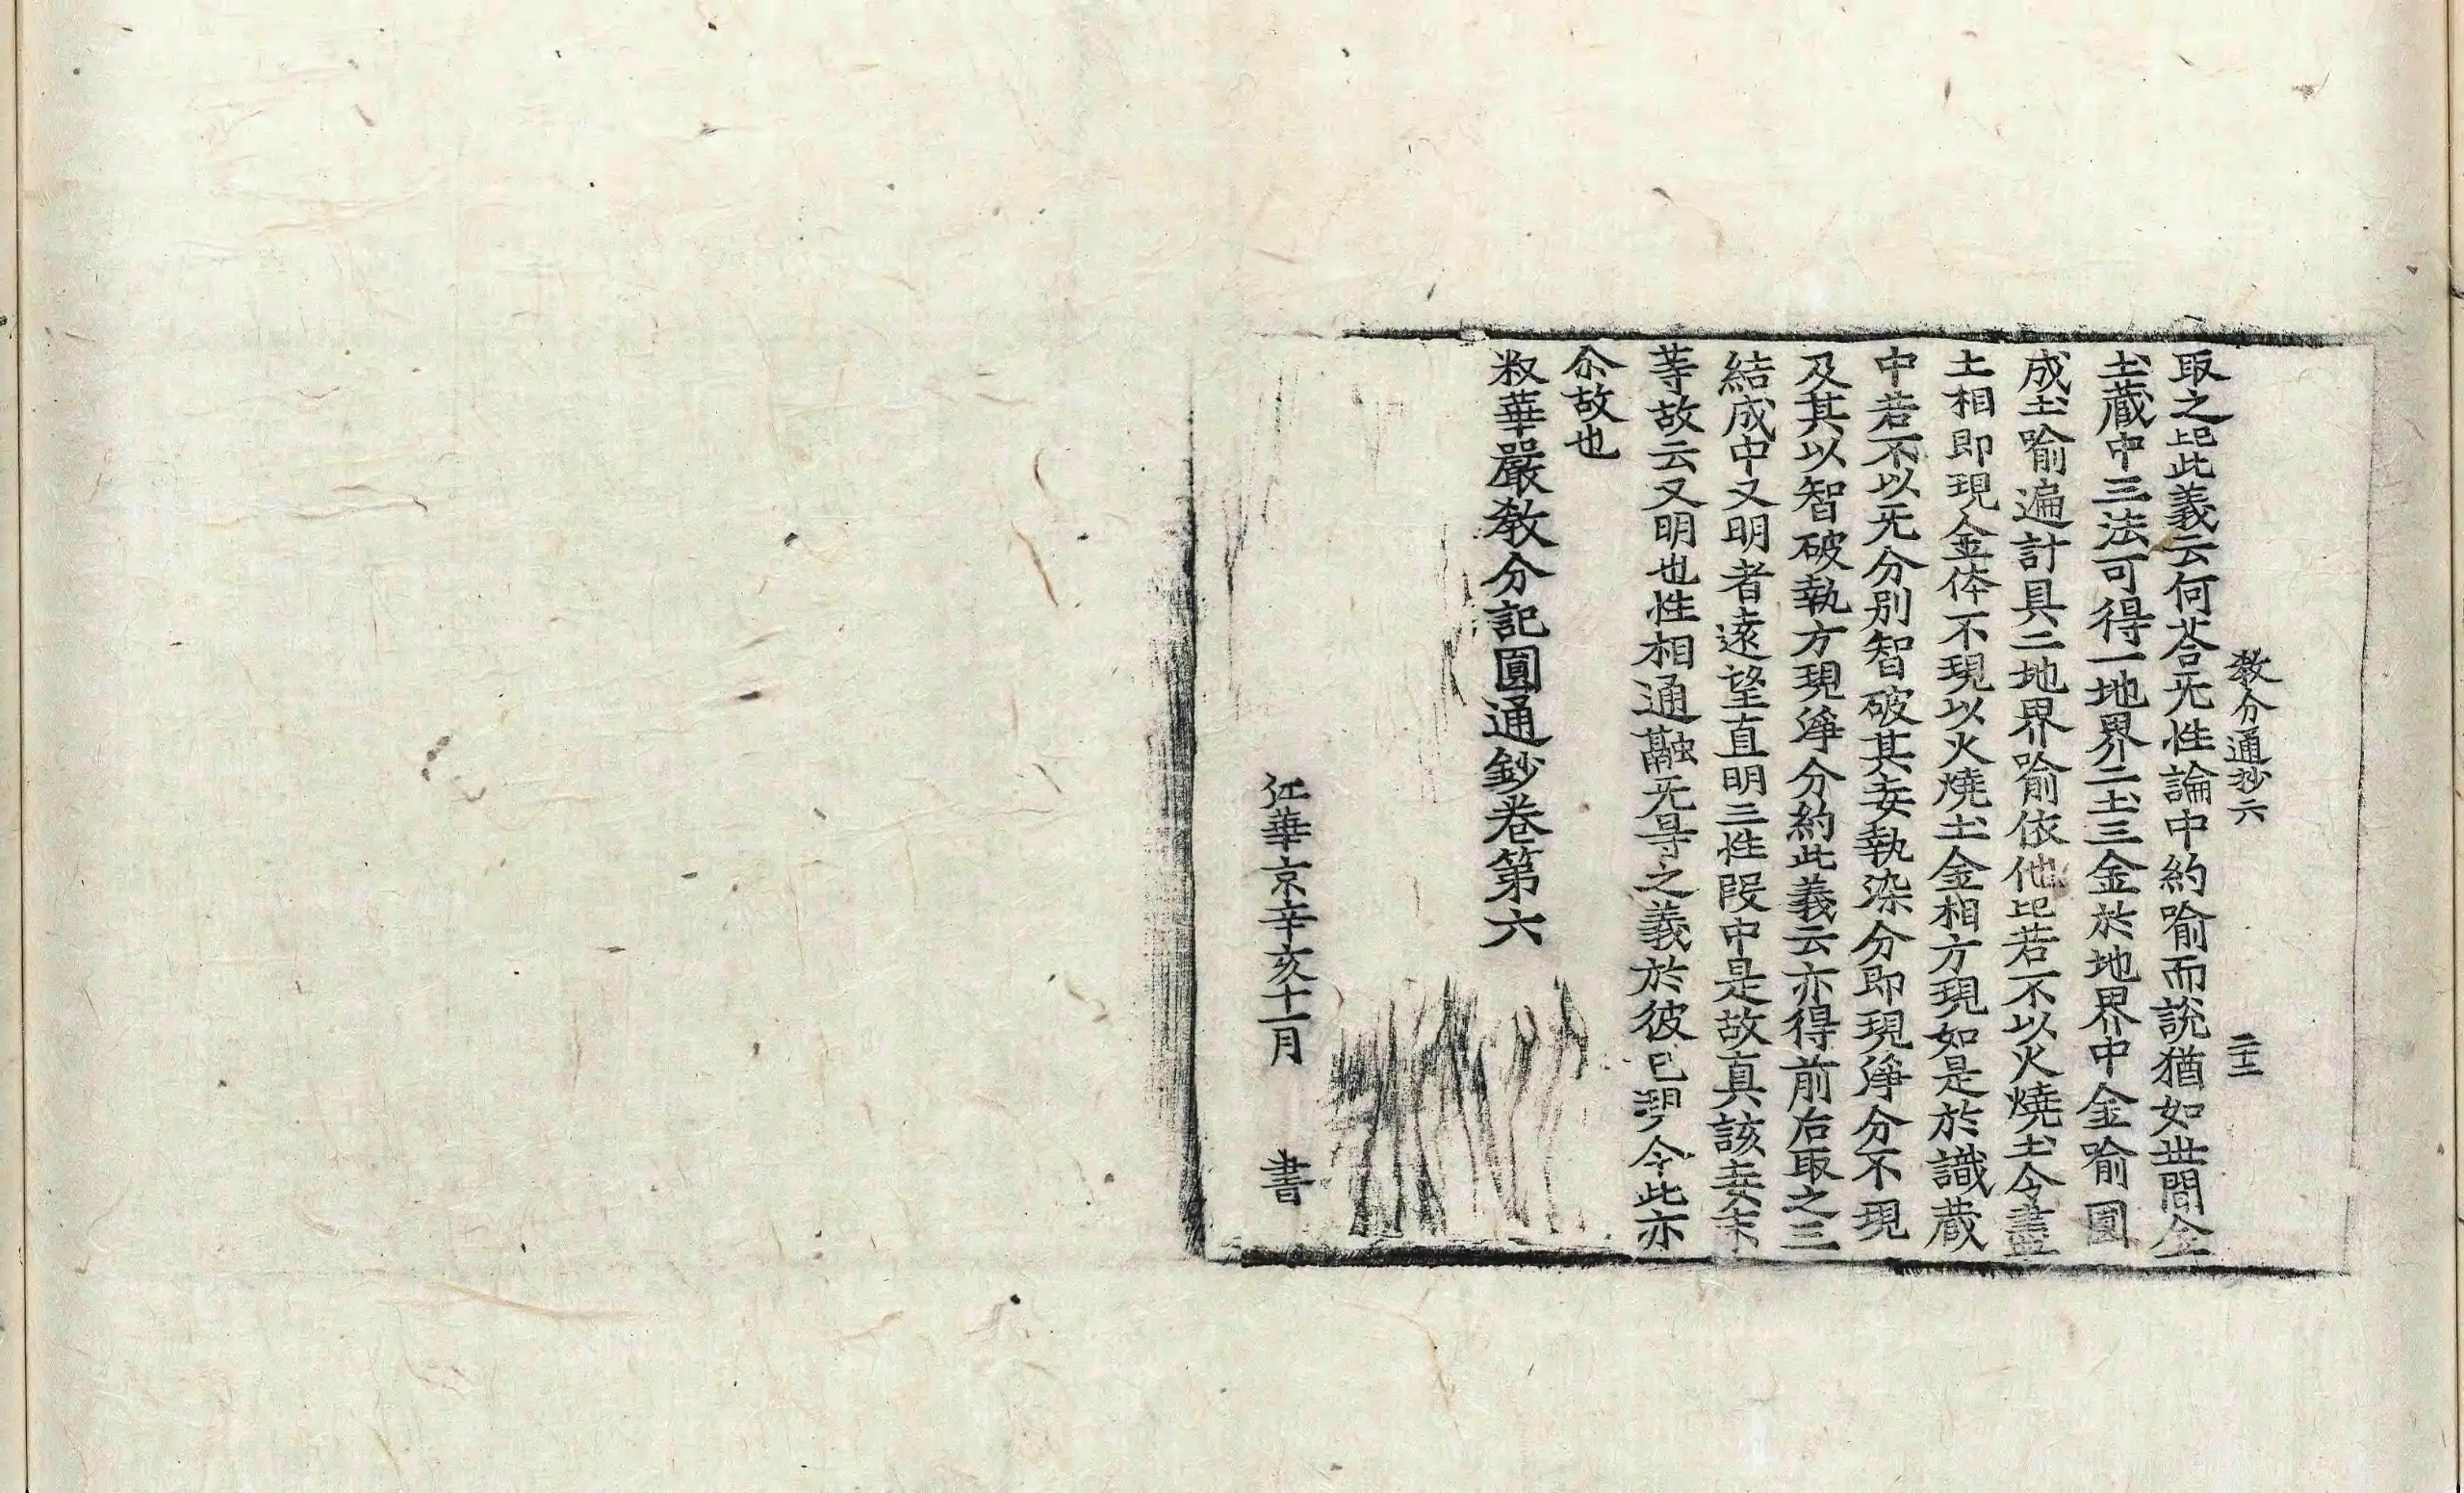 教分通抄六　二十二
取之記此義云何荅无性論中約喻而說猶如世間金
土藏中三法可得一地界二土三金於地界中金喻圓
成土喻遍計具二地界喻依他記若不以火燒土令盡
土相即現金体不現以火燒土金相方現如是於識藏
中若不以无分別智破其妄執染分即現淨分不現
及其以智破執方現淨分約此義云亦得前后取之三
結成中又明者遠望直明三性段中是故真該妄末
等故云又明也性相通融无㝵之義於彼已明今此亦
尒故也
釈華嚴教分記圓通鈔卷第六
江華京辛亥十一月　書